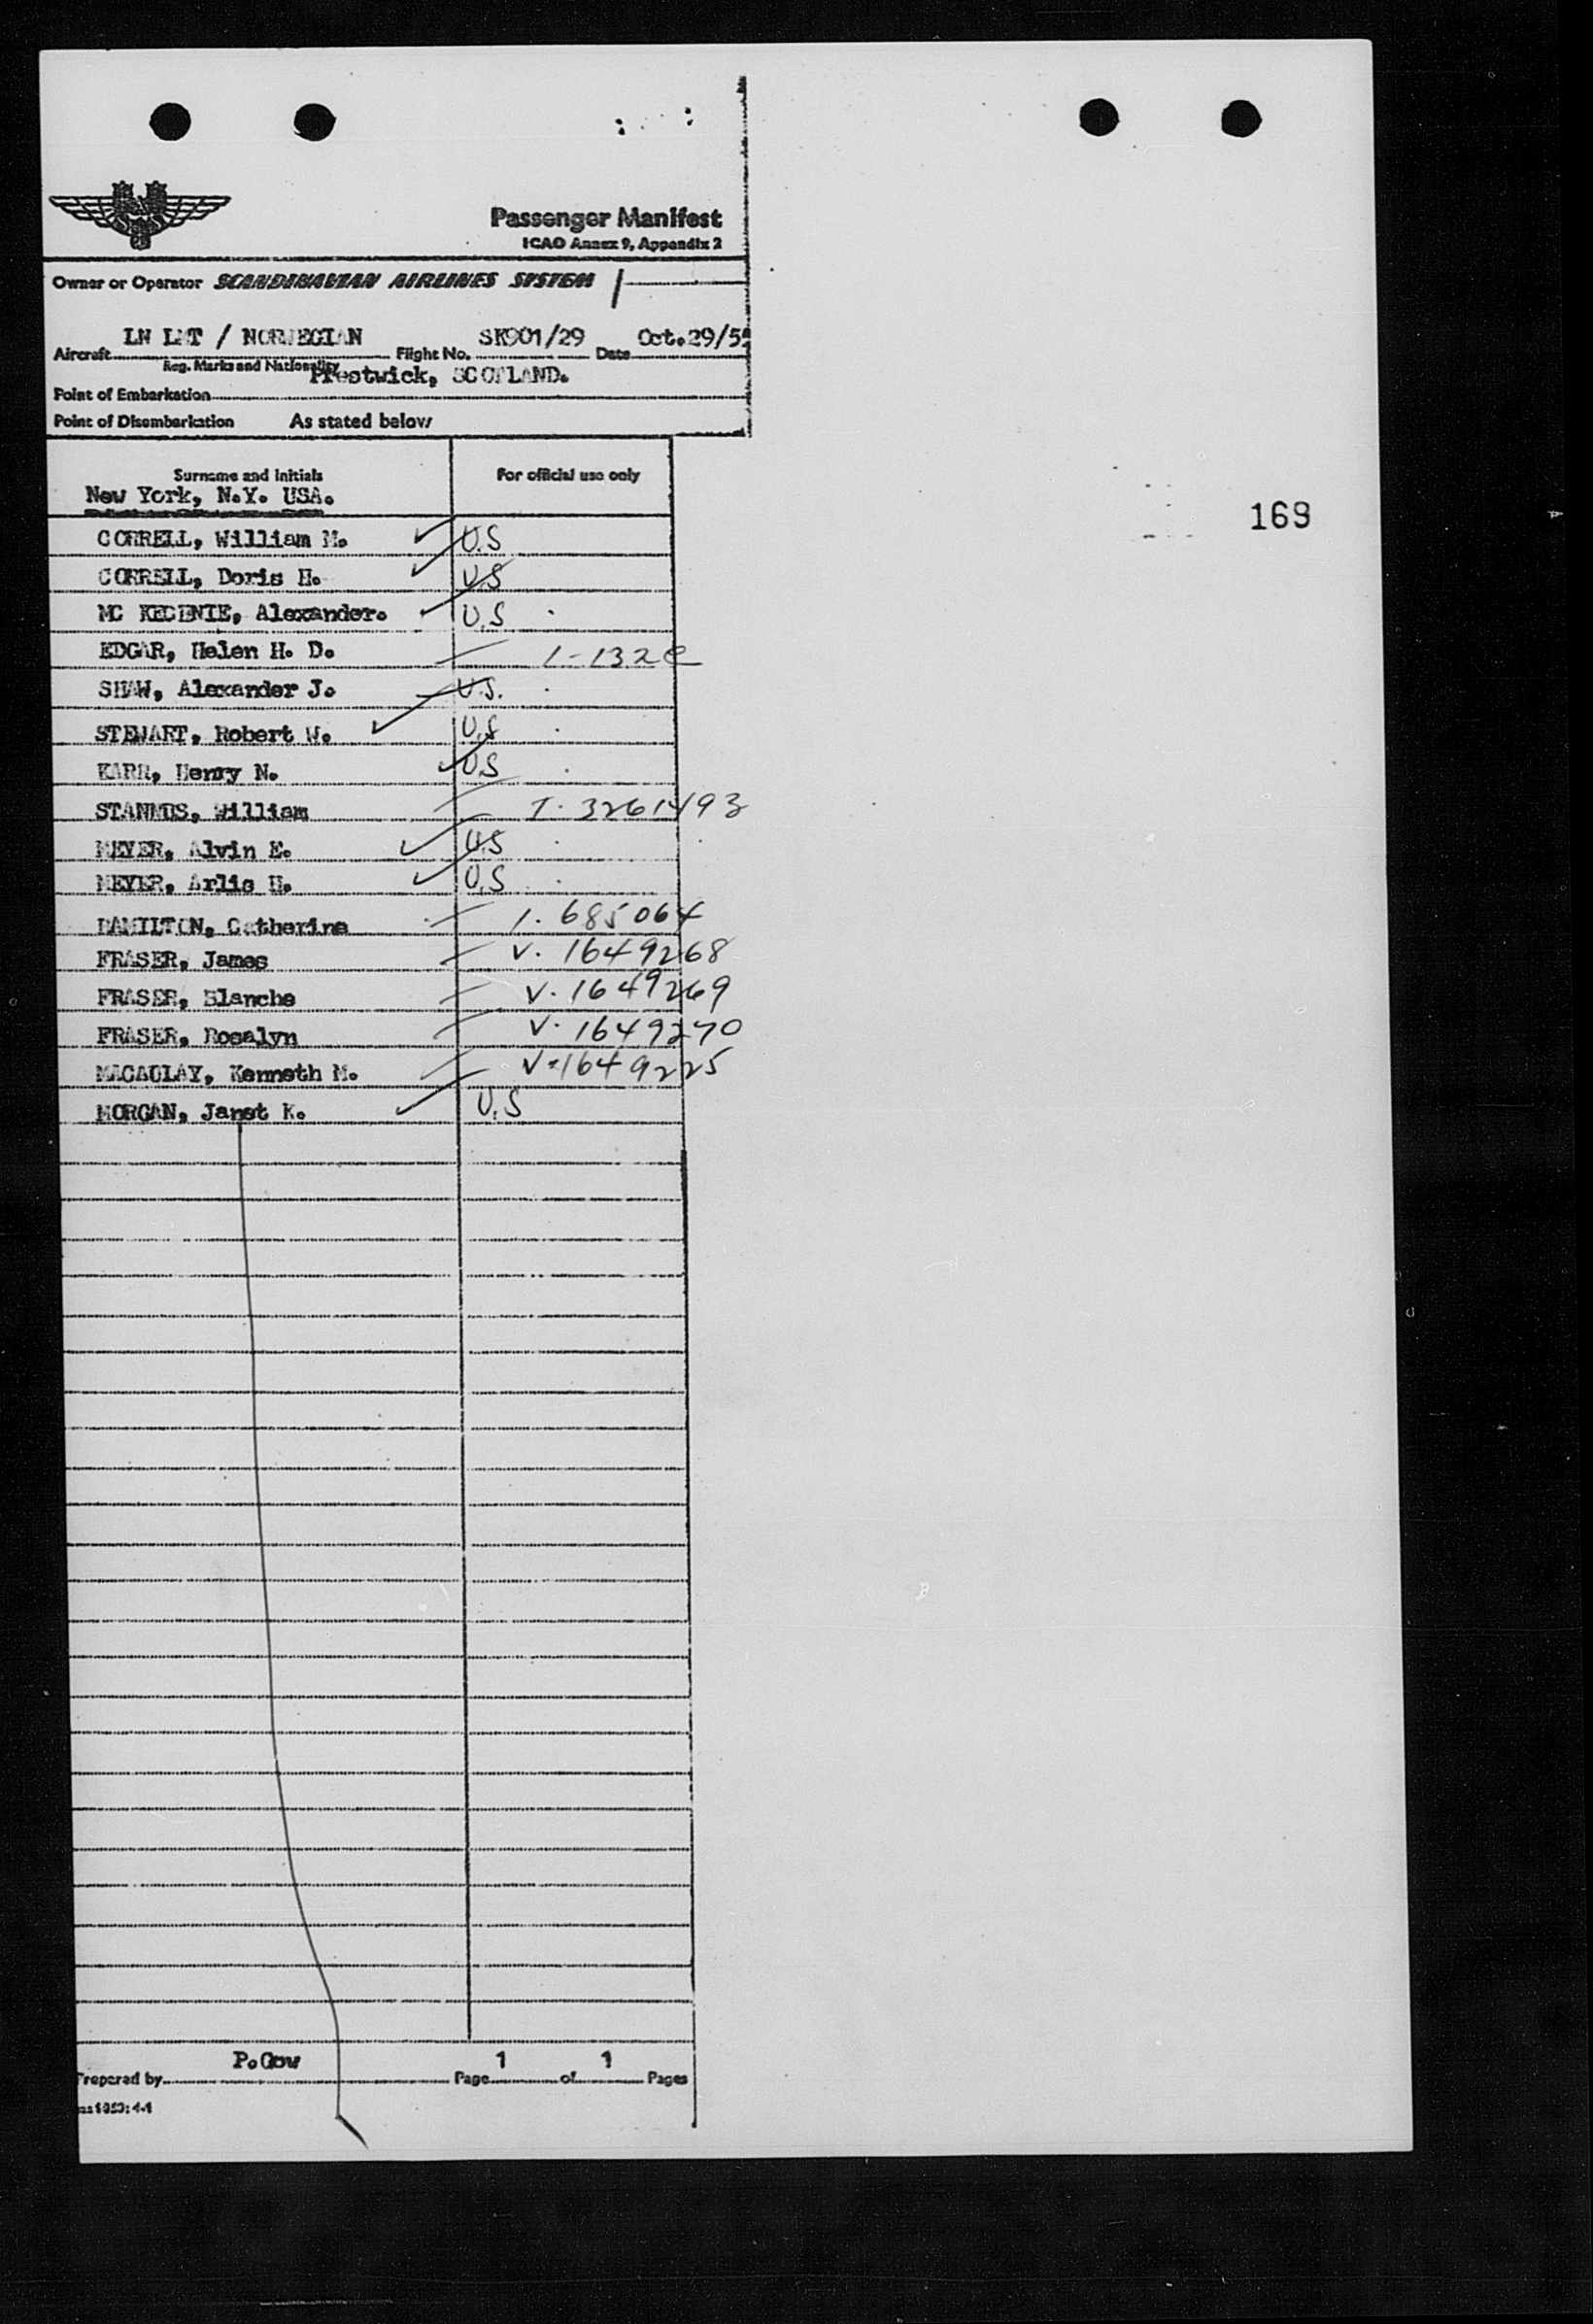 SAS
Passenger Manifest
ICAO Annex 9, Appendix 2
Owner or Operator SCANDINAVIAN AIRLINES SYSTEM
LN LMT / NORWEGIAN SK901/29 Oct.29/55
Aircraft Flight No. Date
Reg. Marks and Nationality
Prestwick, SCOTLAND.
Point of Embarkation
Point of Disembarkation As stated below
Surname and Initials For official use only
New York, N.Y. USA.
169
CORRELL, William M. U.S
CORRELL, Doris H. U.S
MC KECHNIE, Alexander. U.S
EDGAR, Helen H. D. 1-132c
SHAW, Alexander J. U.S.
STEWART, Robert W. U.S
KARR, Henry N. U.S
STANNUS, William I. 3261493
MEYER, Alvin E. U.S
MEYER, Arlis H. U.S
HAMILTON, Catherine 1. 685064
FRASER, James V. 1649268
FRASER, Blanche V. 1649269
FRASER, Rosalyn V. 1649270
MACAULAY, Kenneth M. V. 1649225
MORGAN, Janet K. U.S
P.Gow 1 1
Prepared by Page of Pages